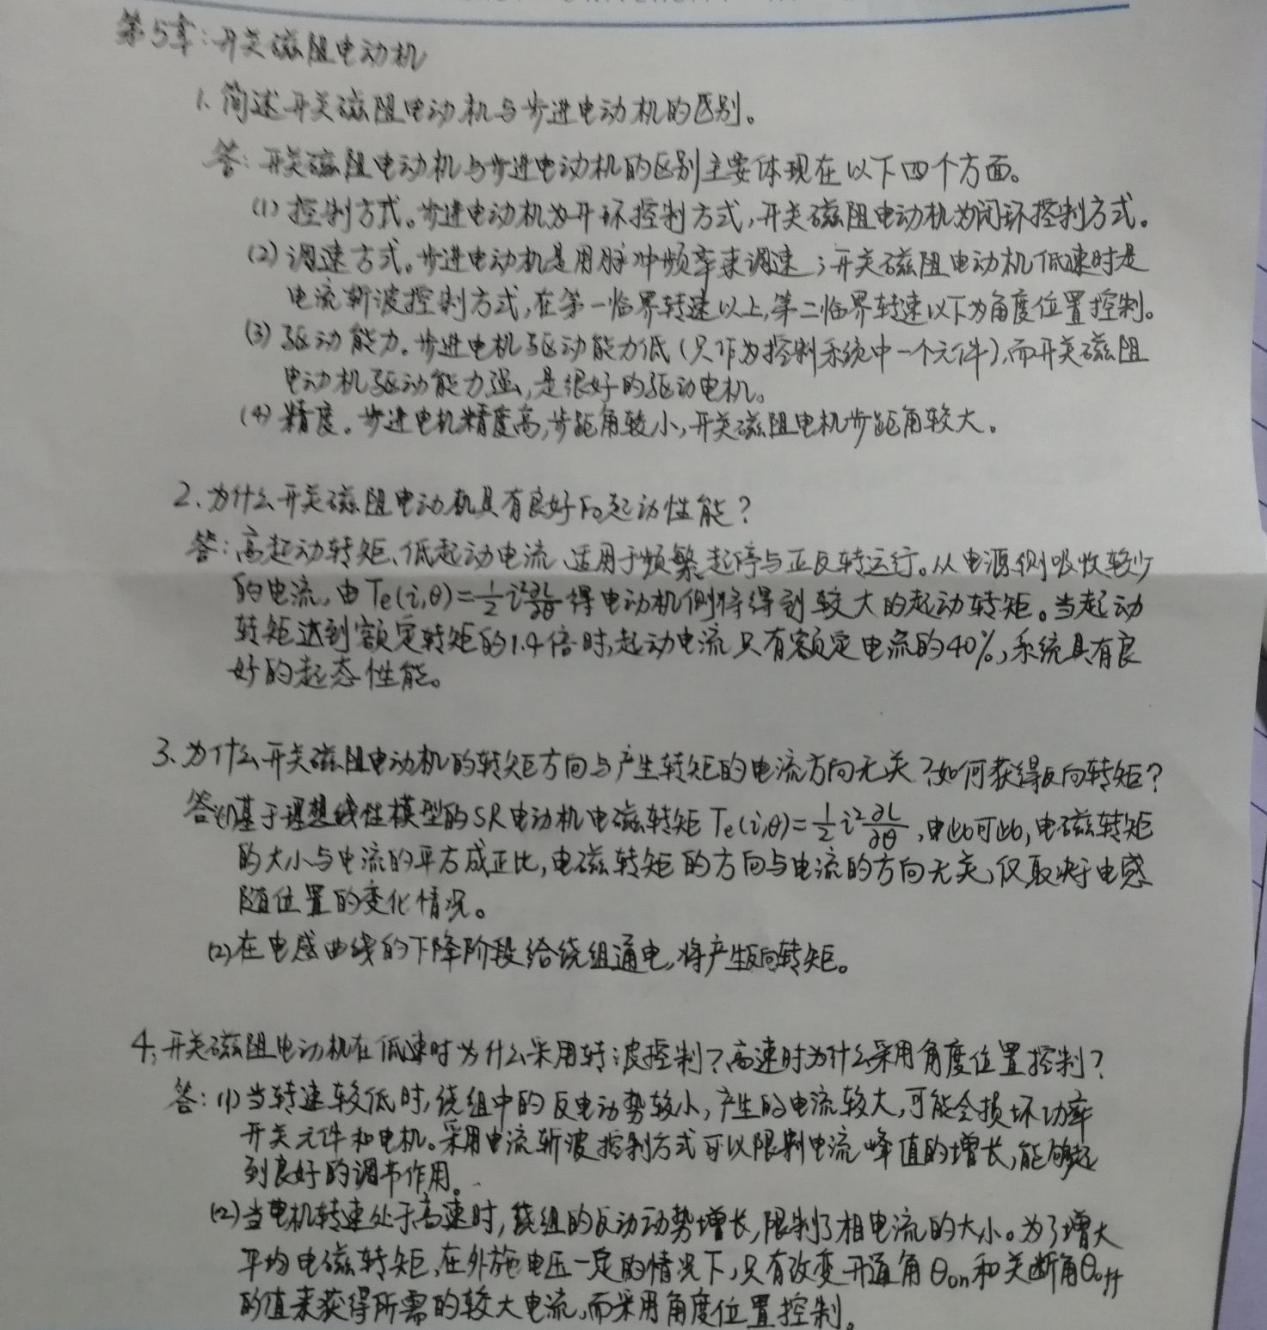 第5章:开关磁阻电动机
1、简述开关磁阻电动机与步进电动机的区别。
答:开关磁阻电动机与步进电动机的区别主要体现在以下四个方面。
(1) 控制方式。步进电动机为开环控制方式,开关磁阻电动机为闭环控制方式。
(2) 调速方式。步进电动机是用脉冲频率来调速;开关磁阻电动机低速时是
电流斩波控制方式,在第一临界转速以上,第二临界转速以下为角度位置控制。
(3) 驱动能力。步进电机驱动能力低(只作为控制系统中一个元件),而开关磁阻
电动机驱动能力强,是很好的驱动电机。
(4) 精度。步进电机精度高,步距角较小,开关磁阻电机步距角较大。
2、为什么开关磁阻电动机具有良好的起动性能?
答:高起动转矩、低起动电流、适用于频繁起停与正反转运行。从电源侧吸收较少
的电流,由Te(i,θ)=1/2 i²∂L/∂θ得电动机侧将得到较大的起动转矩。当起动
转矩达到额定转矩的1.4倍时,起动电流只有额定电流的40%,系统具有良
好的起态性能。
3、为什么开关磁阻电动机的转矩方向与产生转矩的电流方向无关?如何获得反向转矩?
答:(1)基于理想线性模型的SR电动机电磁转矩Te(i,θ)=1/2 i²∂L/∂θ,由此可见,电磁转矩
的大小与电流的平方成正比,电磁转矩的方向与电流的方向无关,仅取决于电感
随位置的变化情况。
(2)在电感曲线的下降阶段给绕组通电,将产生反向转矩。
4、开关磁阻电动机在低速时为什么采用转波控制?高速时为什么采用角度位置控制?
答:(1)当转速较低时,绕组中的反电动势较小,产生的电流较大,可能会损坏功率
开关元件和电机。采用电流斩波控制方式可以限制电流峰值的增长,能够起
到良好的调节作用。
(2)当电机转速处于高速时,绕组的反动动势增长,限制了相电流的大小。为了增大
平均电磁转矩,在外施电压一定的情况下,只有改变开通角θon和关断角θoff
的值来获得所需的较大电流,而采用角度位置控制。